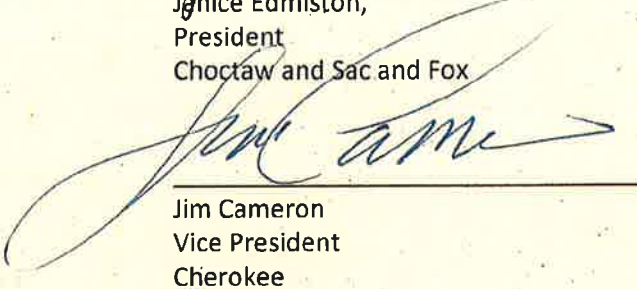 Janice Edmiston,
President
Choctaw and Sac and Fox
Jim Came
Jim Cameron
Vice President
Cherokee